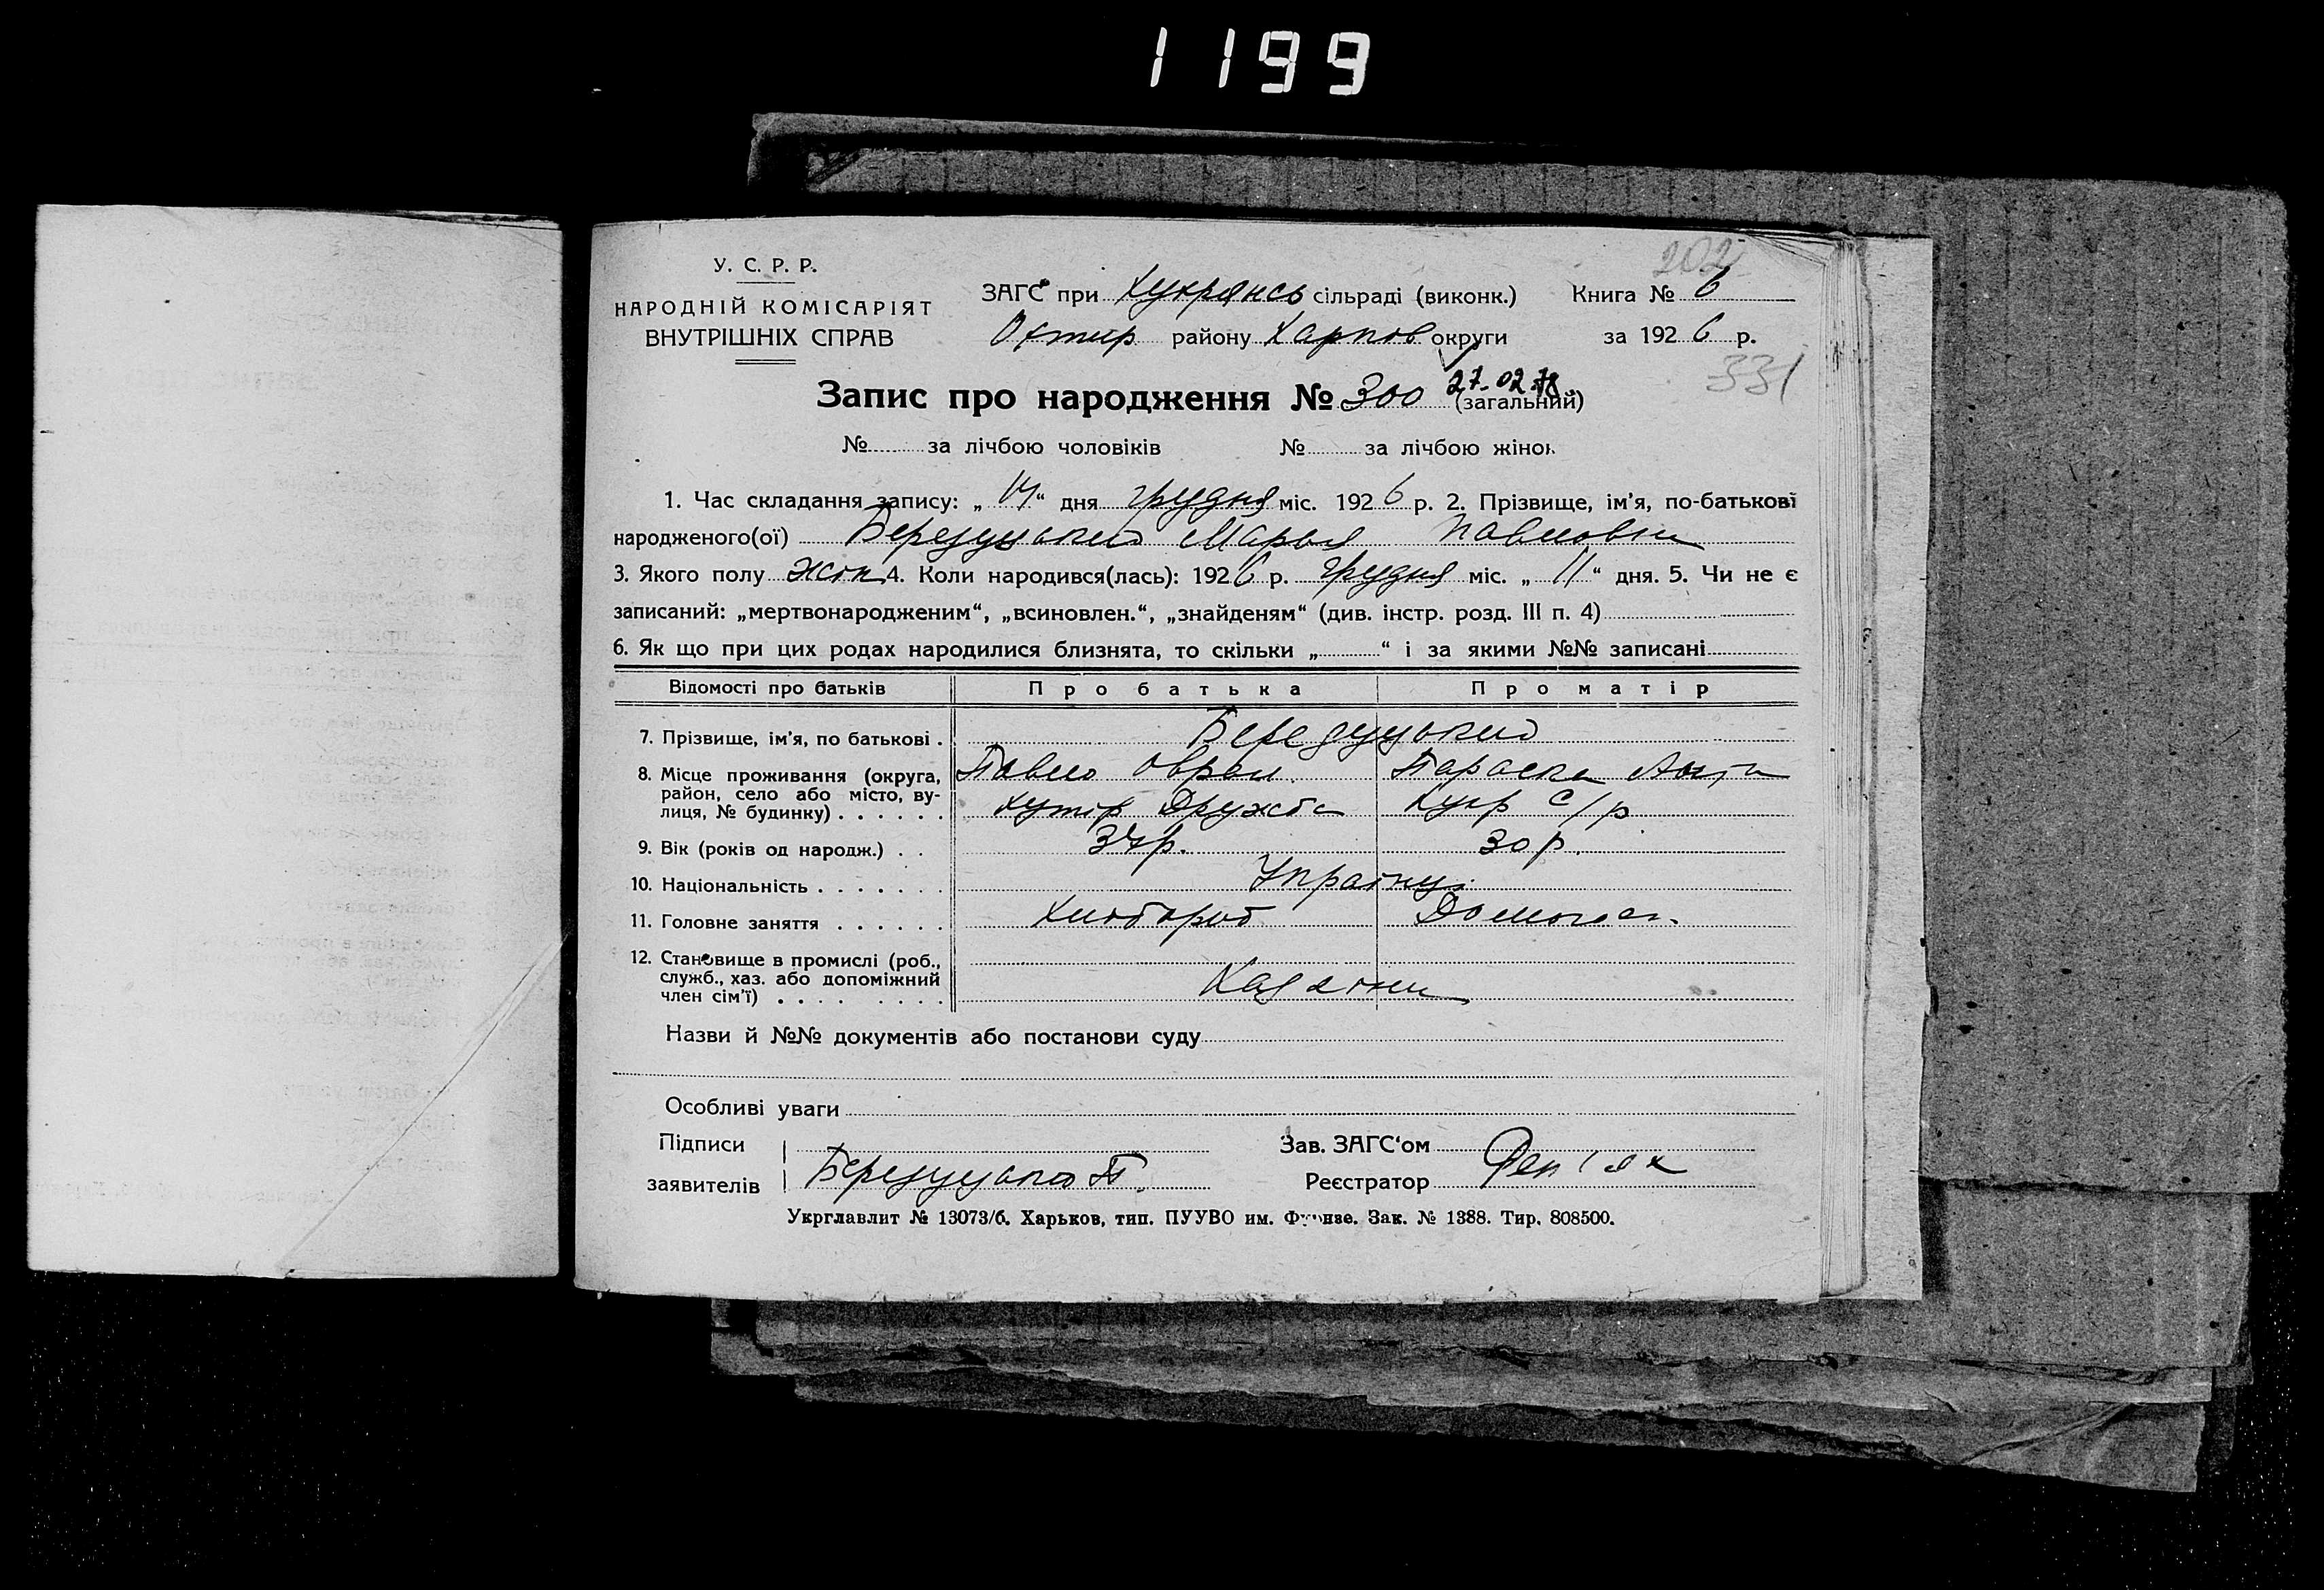 1199
202
У. С. Р. Р.
НАРОДНІЙ КОМІСАРІЯТ
ВНУТРІШНІХ СПРАВ
ЗАГС при Хухрянсь сільраді (виконк.) Книга № 6
Охтир району Харков округи за 1926 р.
331
27-02 78
Запис про народження № 300 (загальний)
№ за лічбою чоловіків № за лічбою жінок
1. Час складання запису: „ “ дня грудня міс. 1926 р. 2. Прізвище, ім’я, по-батькові
народженого(ої) Березуцький Марья Павловна
3. Якого полу жін 4. Коли народився(лась): 1926 р. грудня міс. „ 11 “ дня. 5. Чи не є
записаний: „мертвонародженим“, „всиновлен.“, „знайденям“ (див. інстр. розд. III п. 4)
6. Як що при цих родах народилися близнята, то скільки „ “ і за якими №№ записані
Відомості про батьків Про батька Про матір
7. Прізвище, ім’я, по батькові . Березуцький
8. Місце проживання (округа, Павло Параска
район, село або місто, ву-
лиця, № будинку) . . . . . . хутір Дружба Хухр с/р
9. Вік (років од народж.) . . р. 30 р.
10. Національність . . . . . . . Українці
11. Головне заняття . . . . . . Хлібороб Домогосп.
12. Становище в промислі (роб.,
служб., хаз. або допоміжний
член сім’ї) . . . . . . . . Хазяїни
Назви й №№ документів або постанови суду
Особливі уваги
Підписи Зав. ЗАГС‘ом
заявителів Березуцький П. Реєстратор
Укрглавлит № 13073/б. Харьков, тип. ПУУВО им. Фрунзе. Зак. № 1388. Тир. 808500.